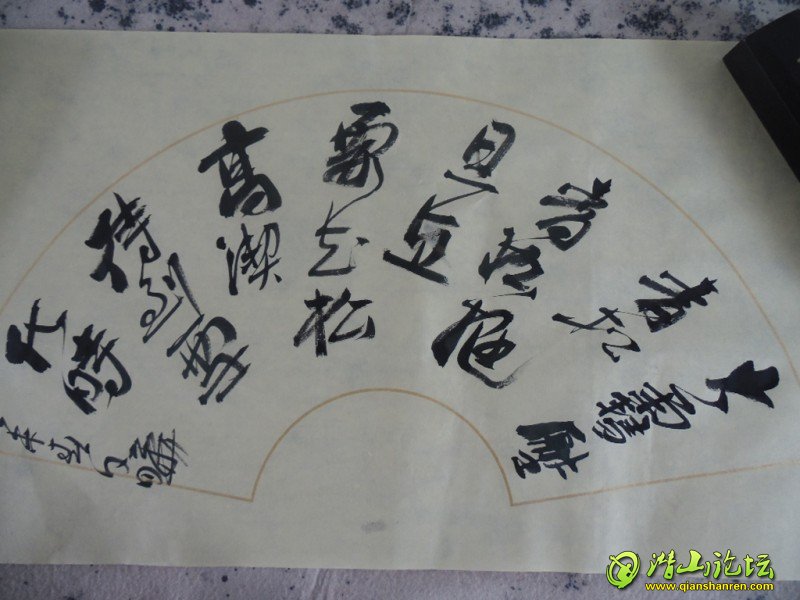 大雪壓
青松
青松挺
且直
要知松
高潔
待到雪
化時
潜山论坛
www.qianshanren.com